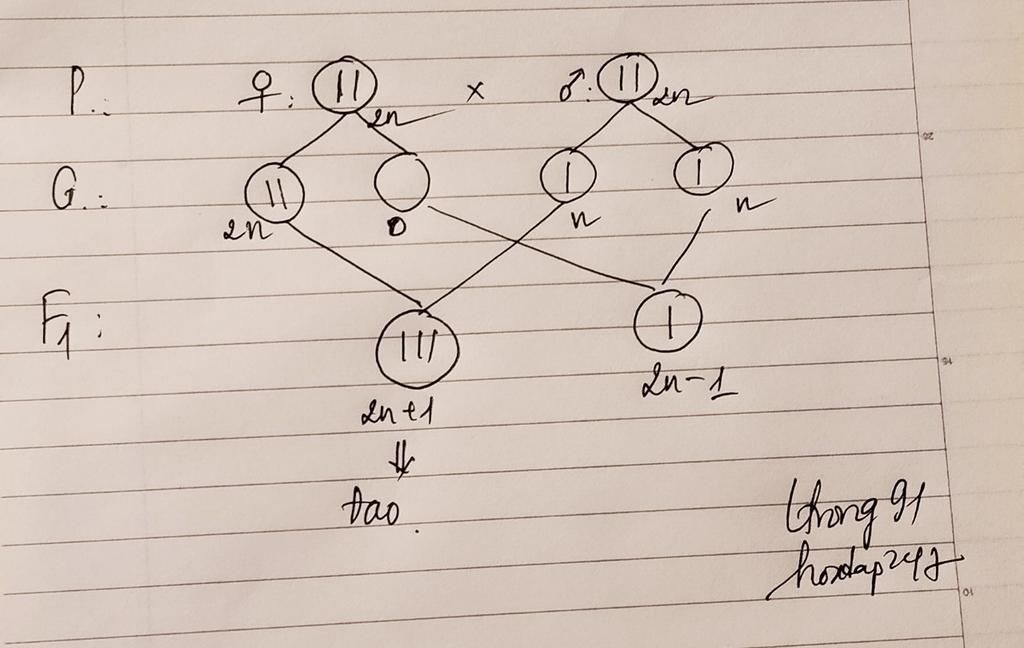 P.: ♀: II 2n x ♂: II 2n
G.: II 2n 0 I n I n
F1: III 2n+1 I 2n-1
⇓
Đao.
hoidap247